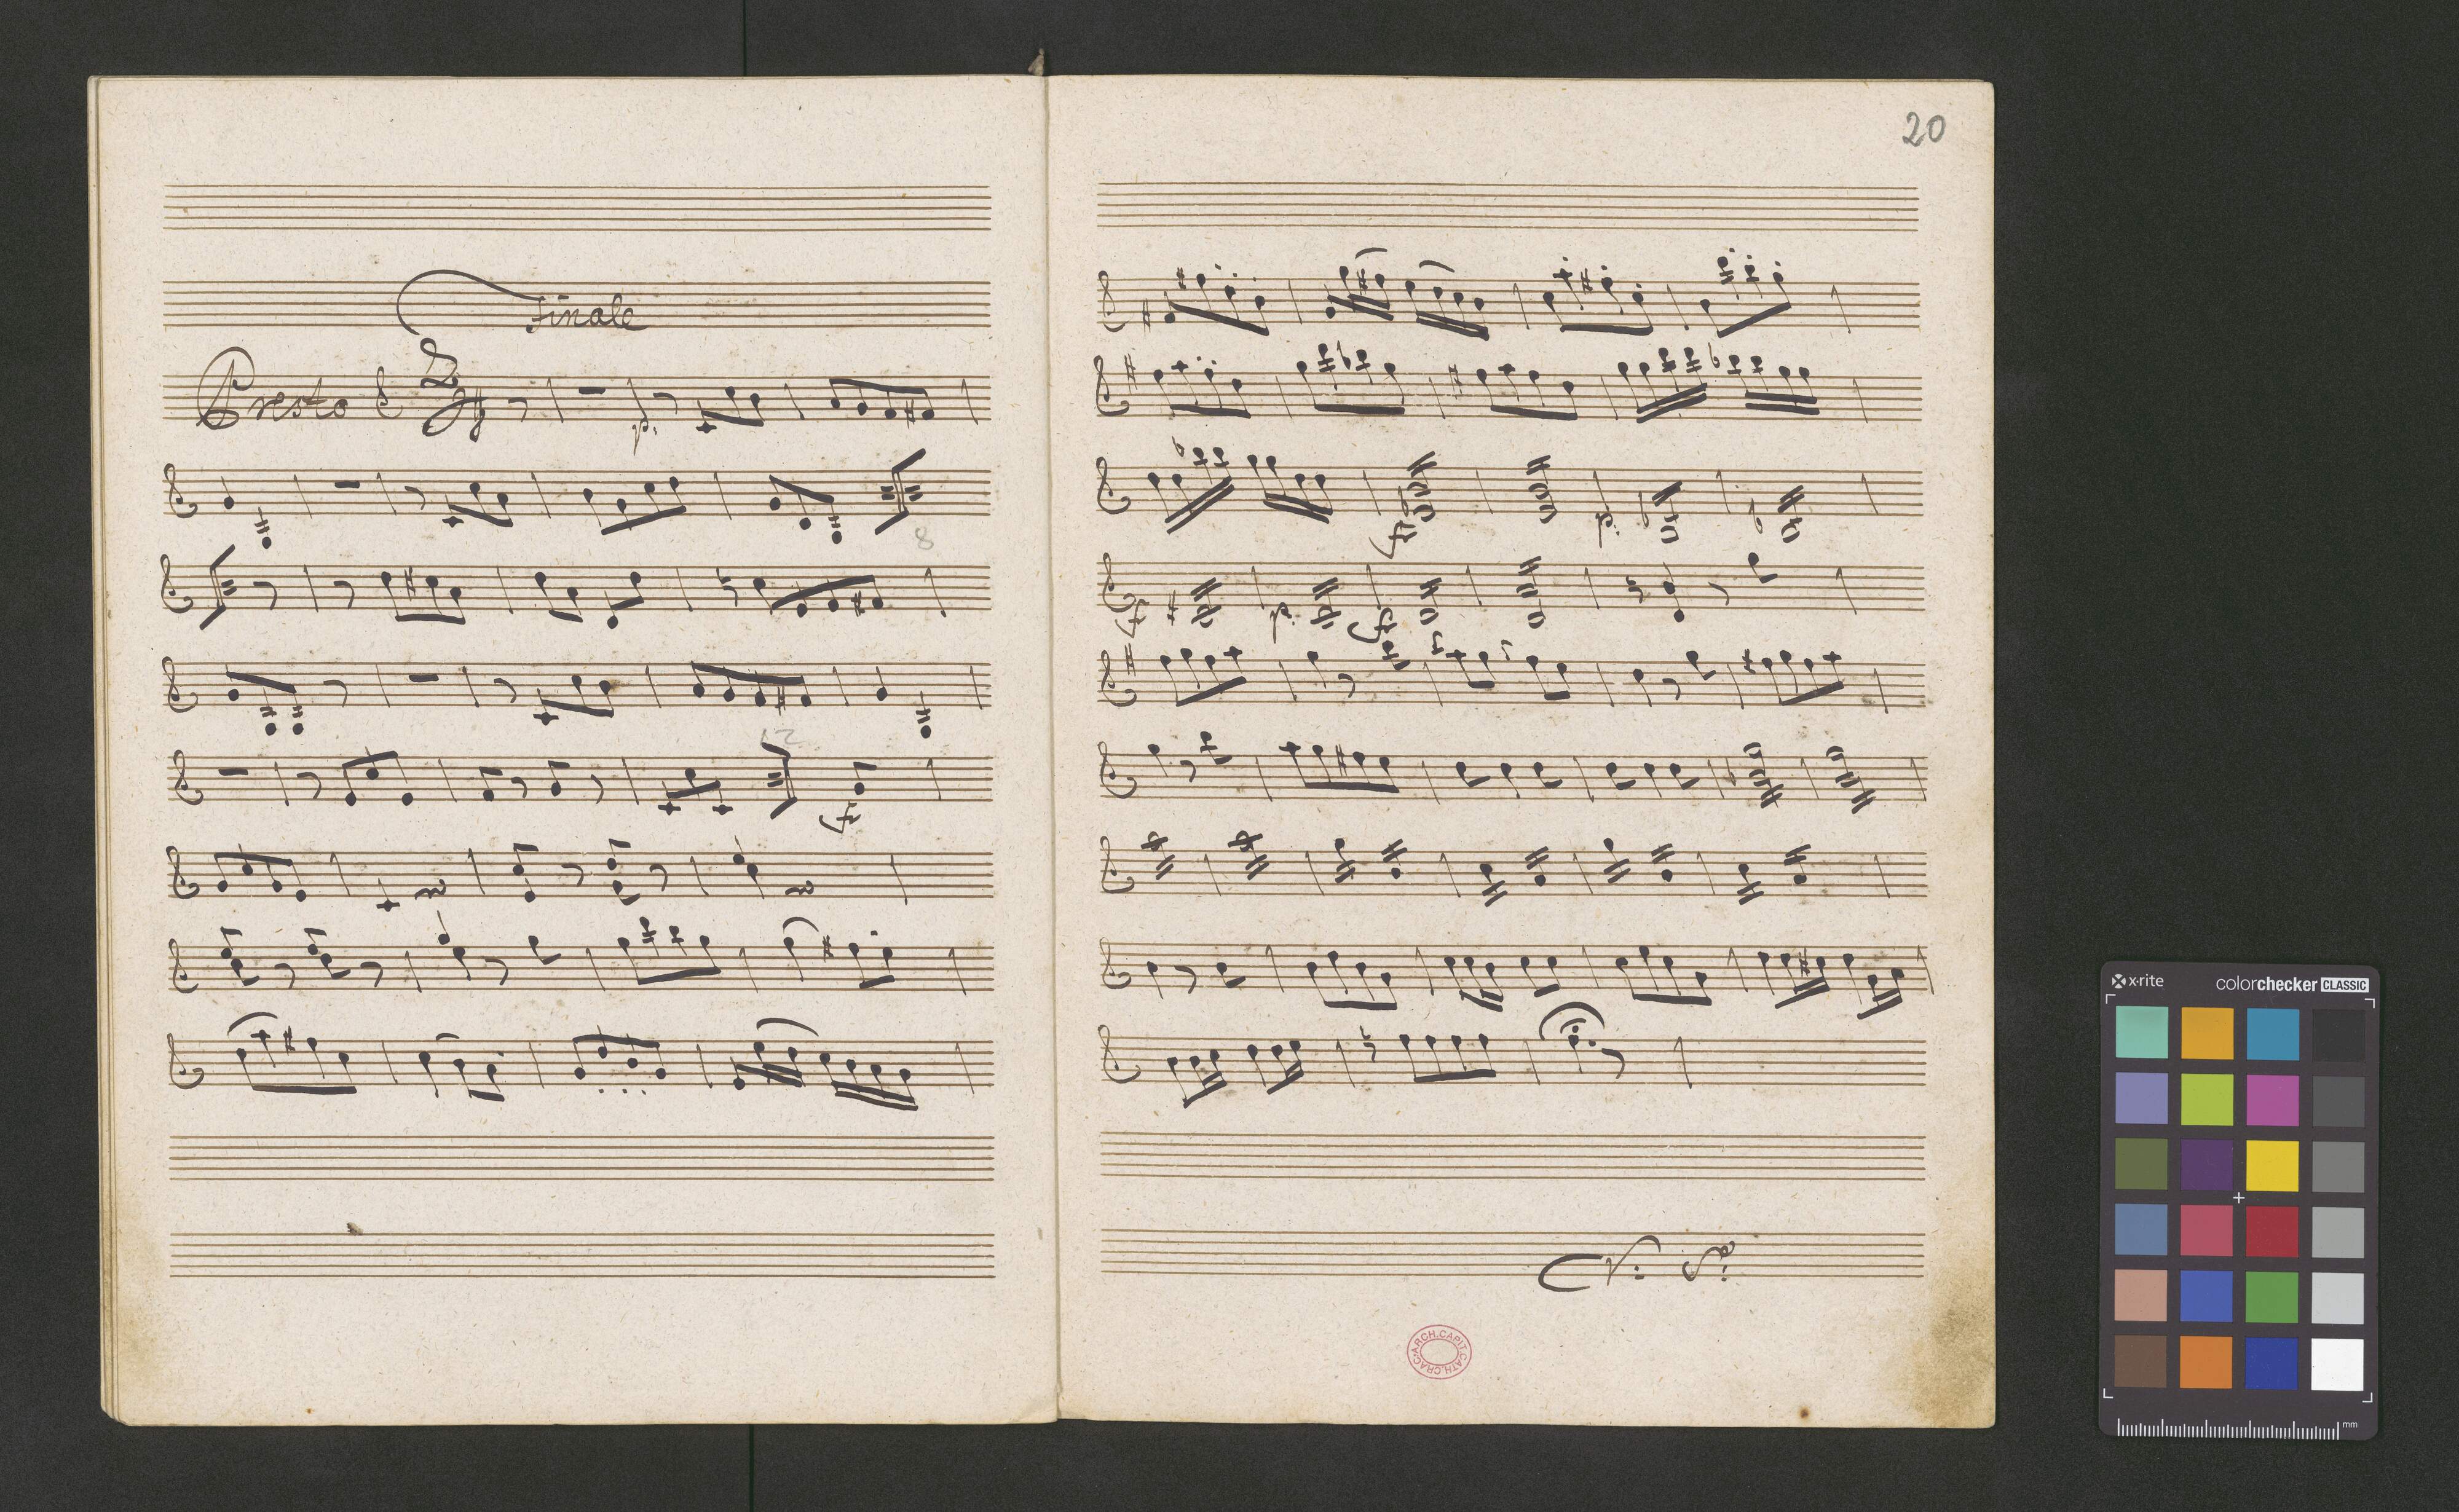 Finale
Presto 2/4
p.
8
12
f
20
f p.
f p. f
V: S:
ARCH.CAPIT.CATH.CRAC.
x-rite colorchecker CLASSIC
mm